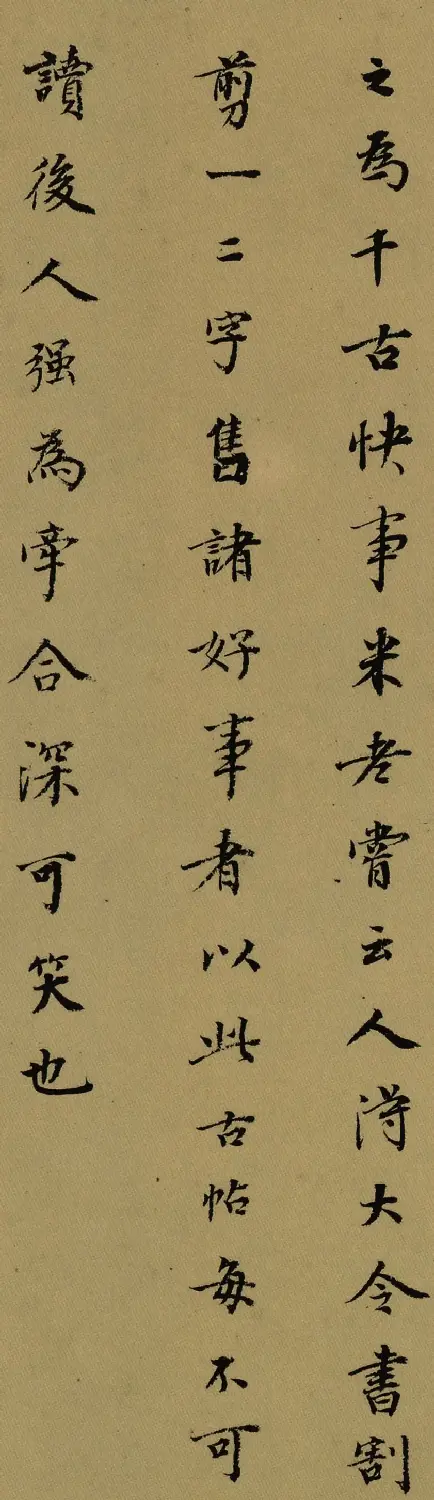 之為千古快事米老嘗云人得大令書割
剪一二字售諸好事者以此古帖每不可
讀後人强為牽合深可笑也